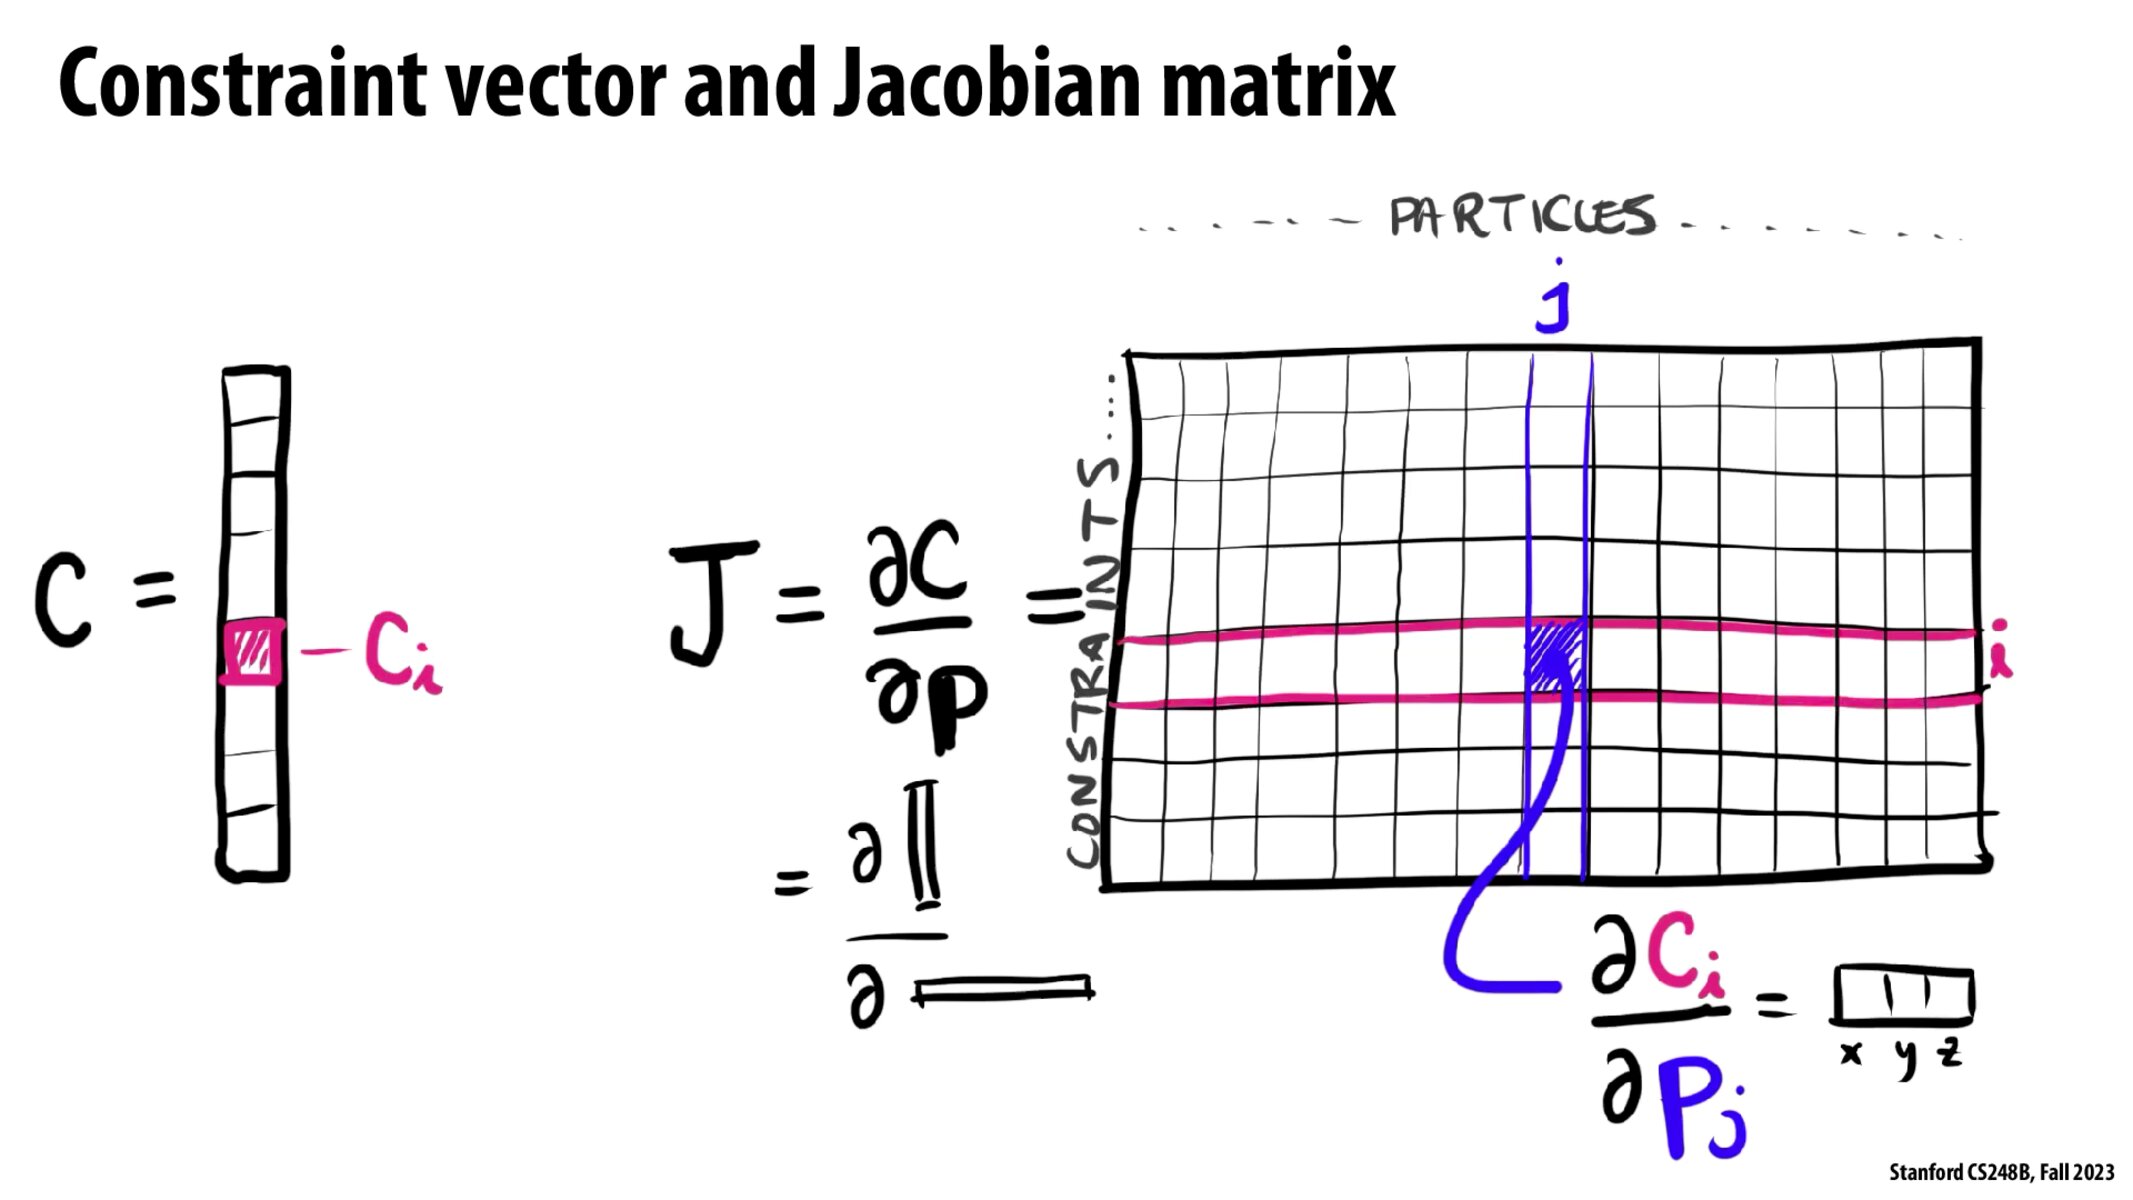 Constraint vector and Jacobian matrix
PARTICLES
j
CONSTRAINTS
C = – Cᵢ
J = ∂C/∂p =
i
= ∂ / ∂
∂Cᵢ/∂Pⱼ =
x y z
Stanford CS248B, Fall 2023